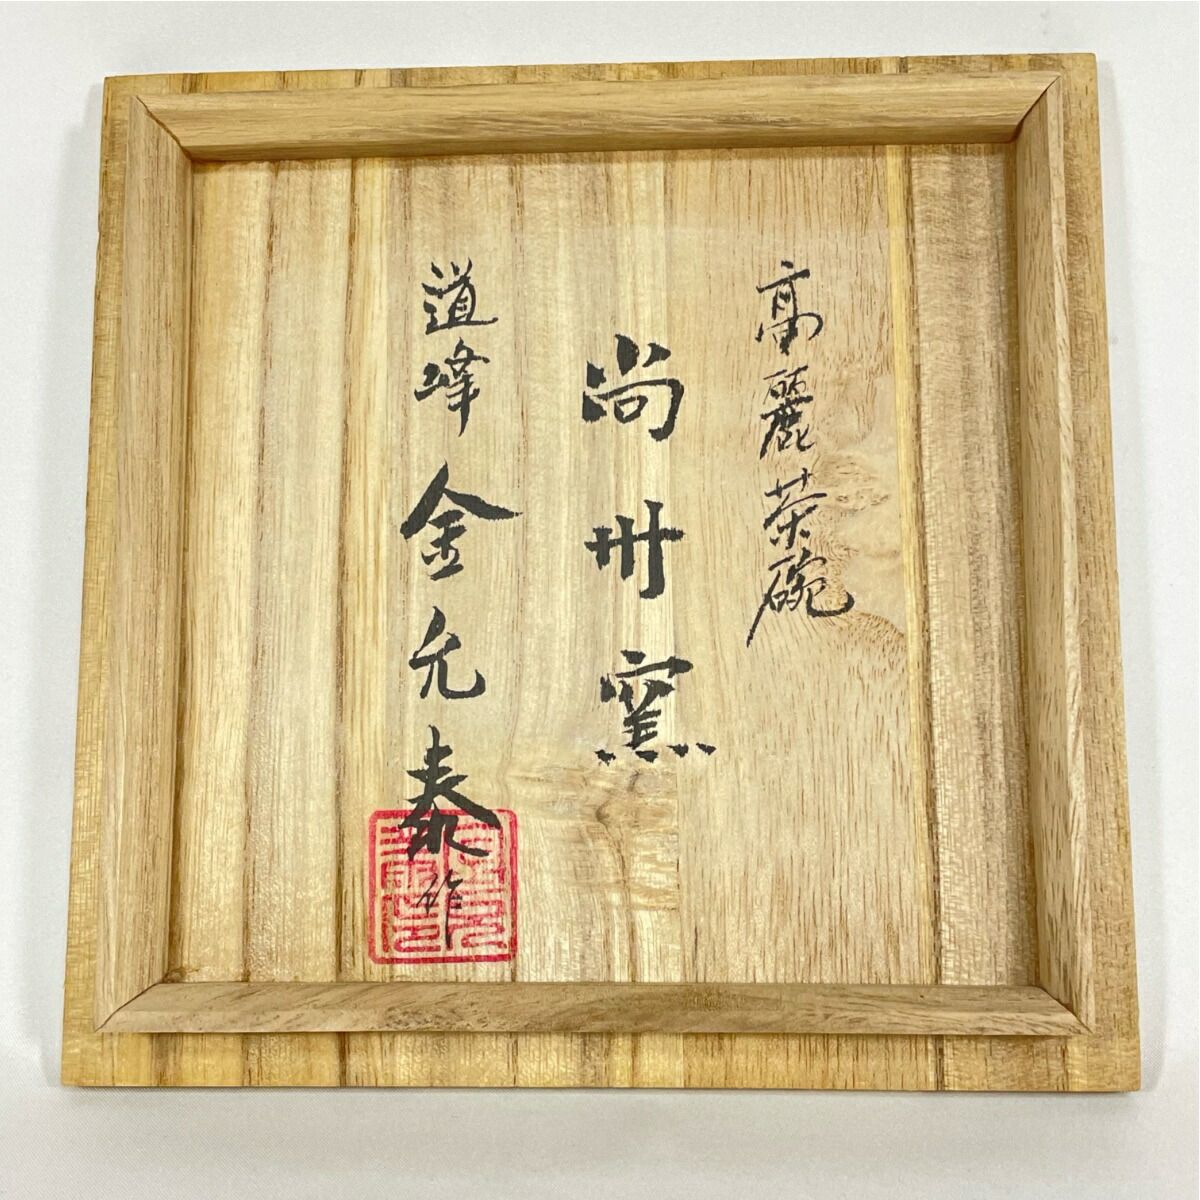 高麗茶碗
尚州窯
道峰 金允泰作